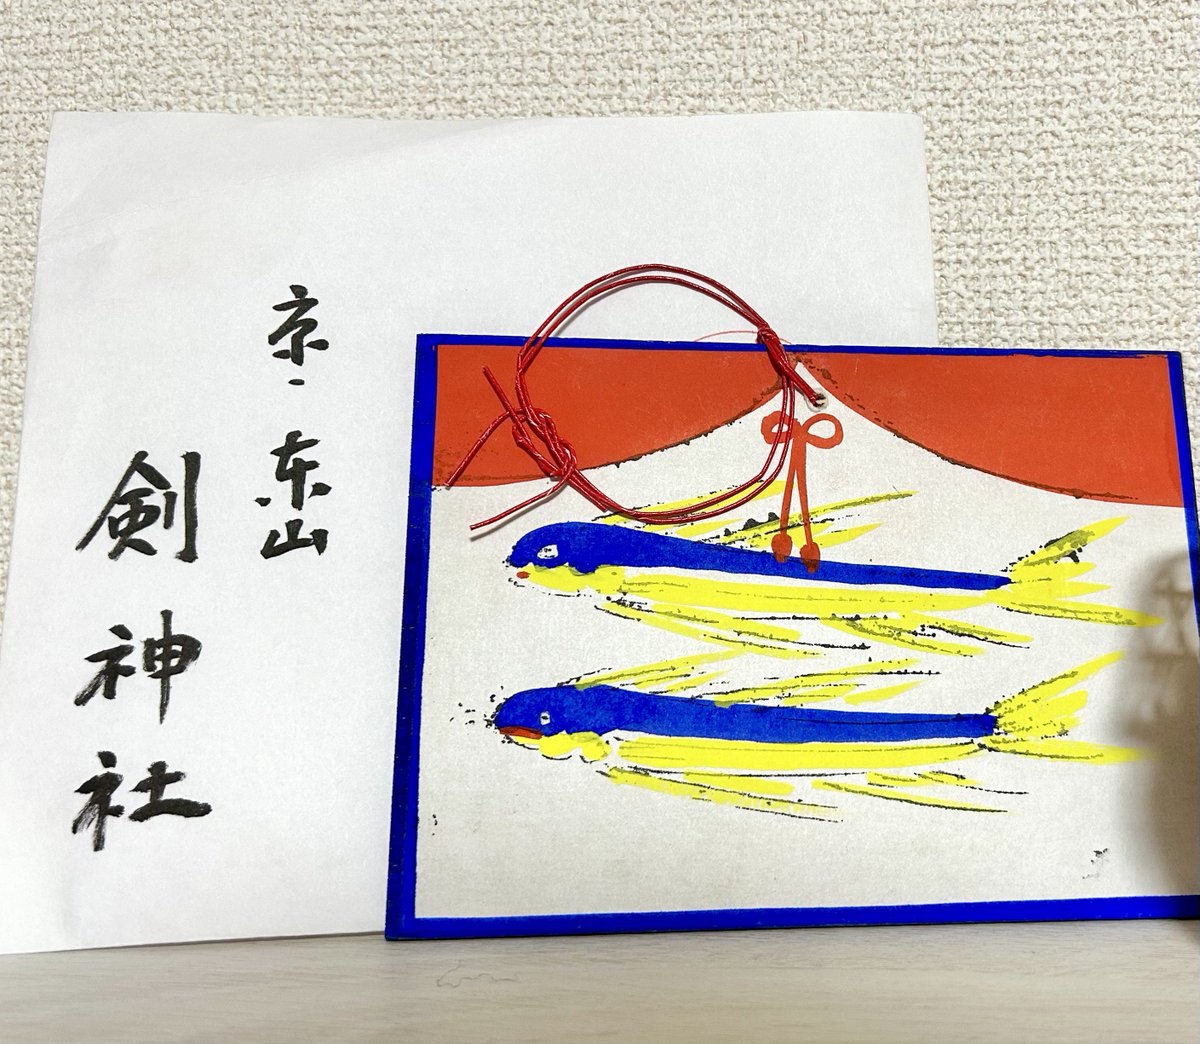 京・東山
剣神社